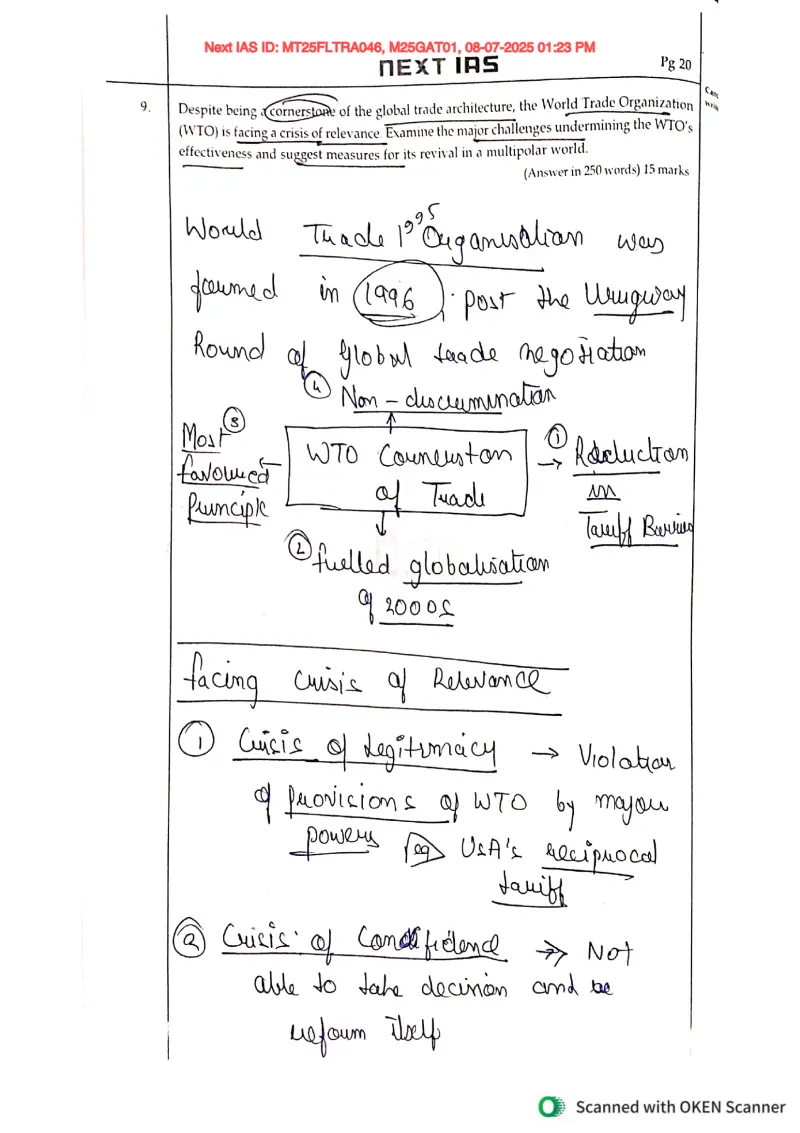 Next IAS ID: MT25FLTRA046, M25GAT01, 08-07-2025 01:23 PM
NEXT IAS
Pg 20
9. Despite being a cornerstone of the global trade architecture, the World Trade Organization
(WTO) is facing a crisis of relevance. Examine the major challenges undermining the WTO's
effectiveness and suggest measures for its revival in a multipolar world.
(Answer in 250 words) 15 marks
1995
World Trade Organisation was
formed in 1996. post the Uruguay
Round of global trade negotiation
④ Non-discrimination
③ Most
favoured
Principle
WTO Cornerston
of Trade
① → Reduction
in
Tariff Barrier
② fuelled globalisation
of 2000s
facing Crisis of Relevance
① Crisis of Legitimacy → Violation
of provisions of WTO by major
powers eg USA's reciprocal
tariff
② Crisis of Confidence ⇒ Not
able to take decision and be
reform itself
Scanned with OKEN Scanner